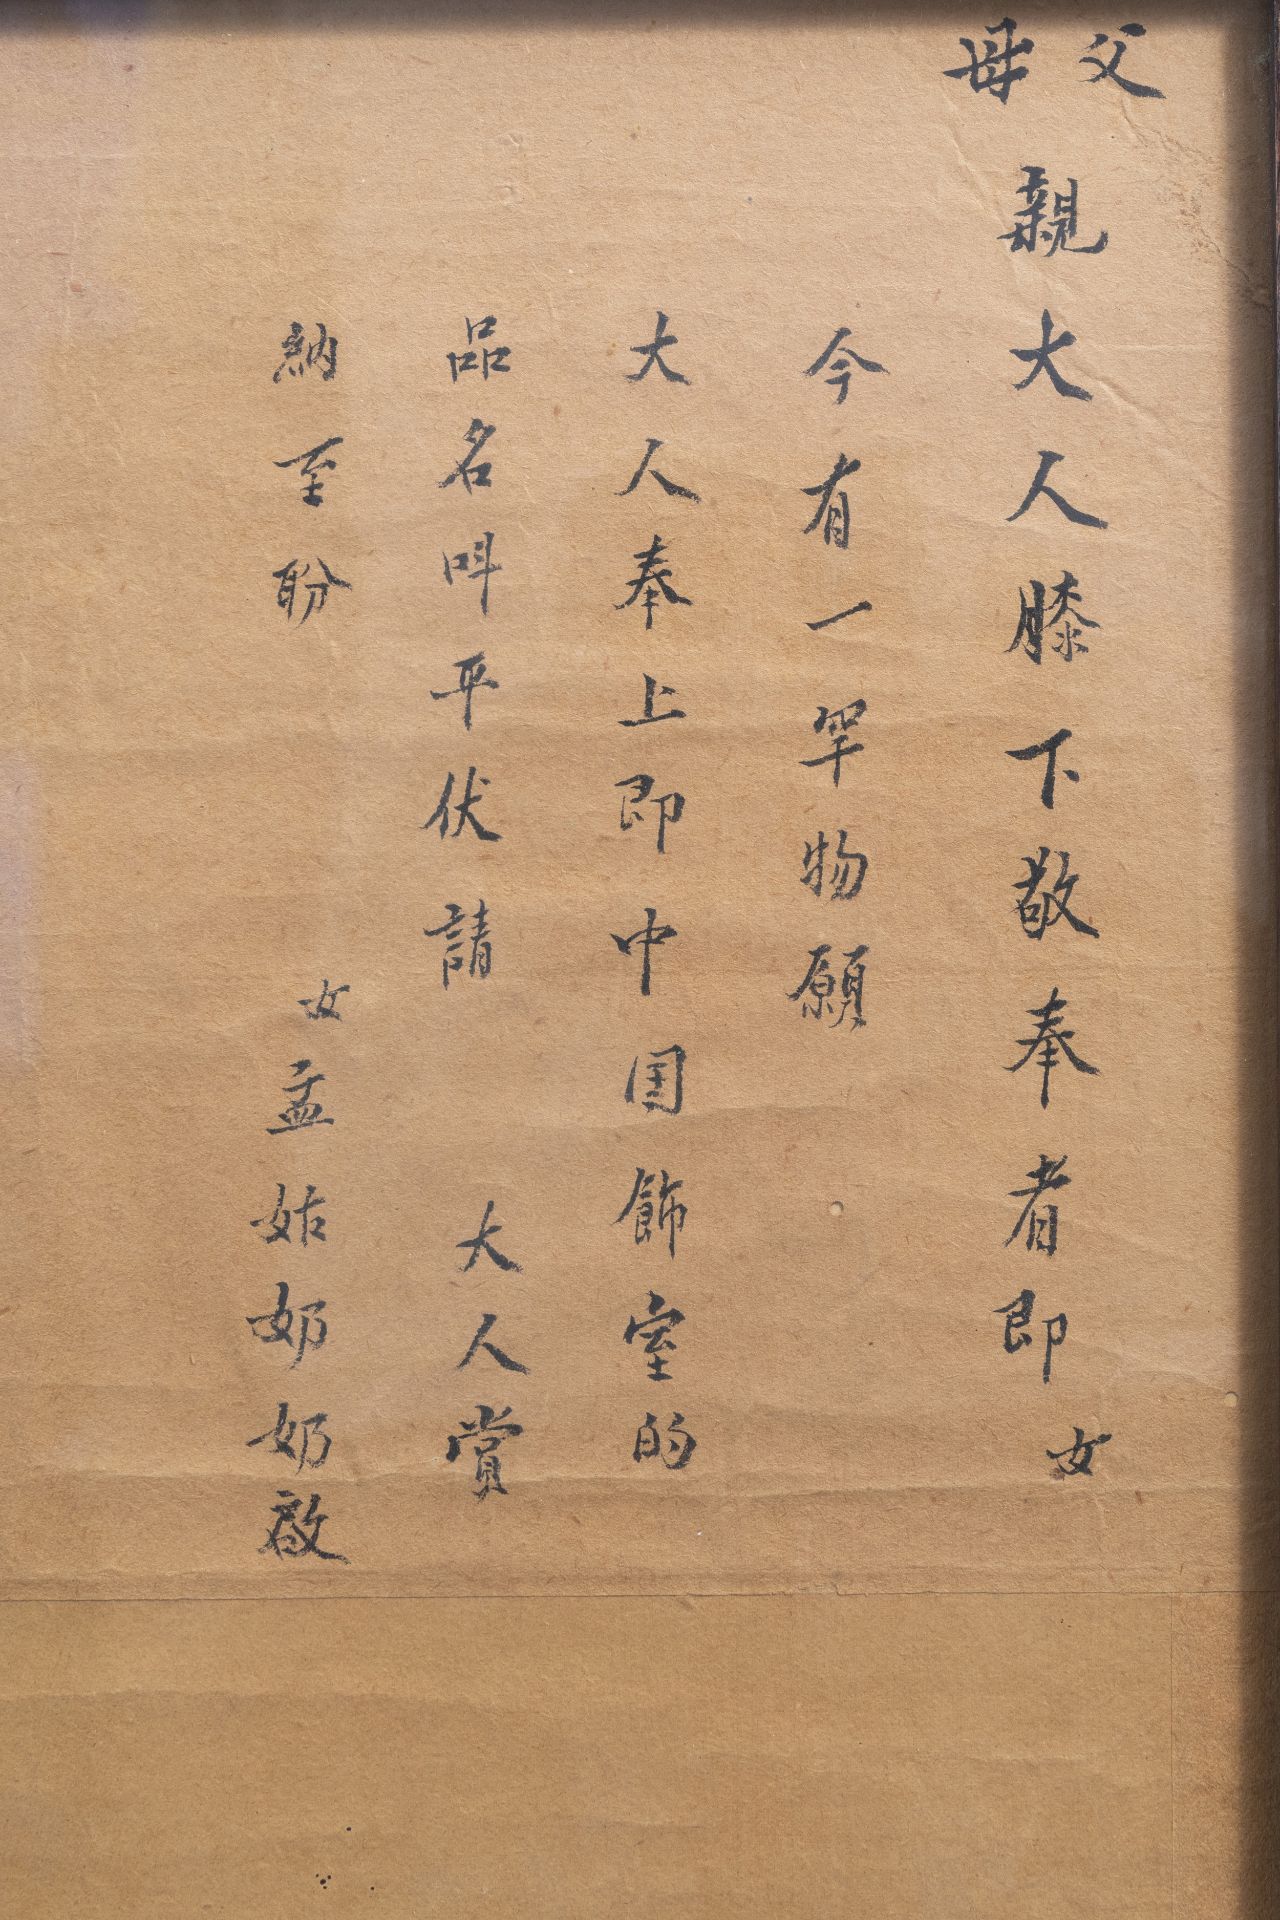 父母親大人膝下敬奉者即女
今有一罕物願
大人奉上即中国飾室的
品名呌平伏請 大人賞
納至盼
女孟姑奶奶啟